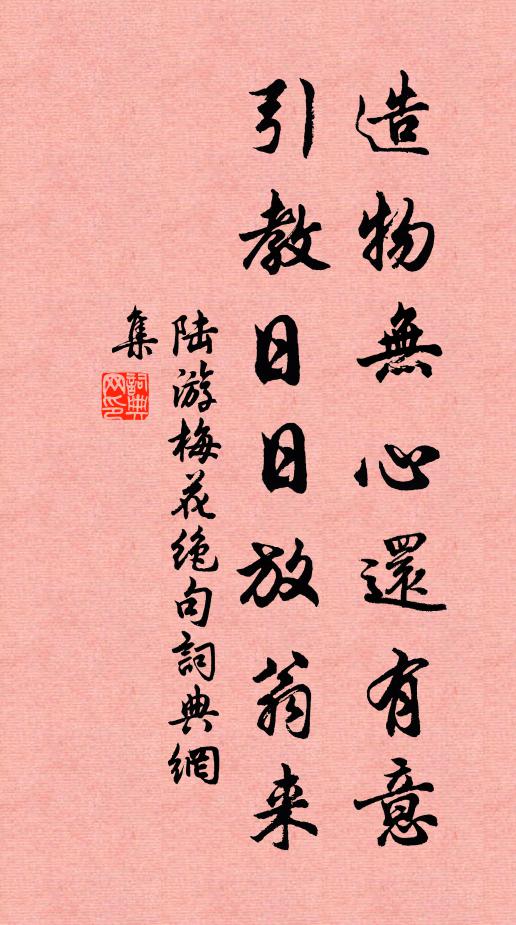 造物無心還有意
引教日日放翁来
陆游梅花绝句詞典網
集
詞典
网印